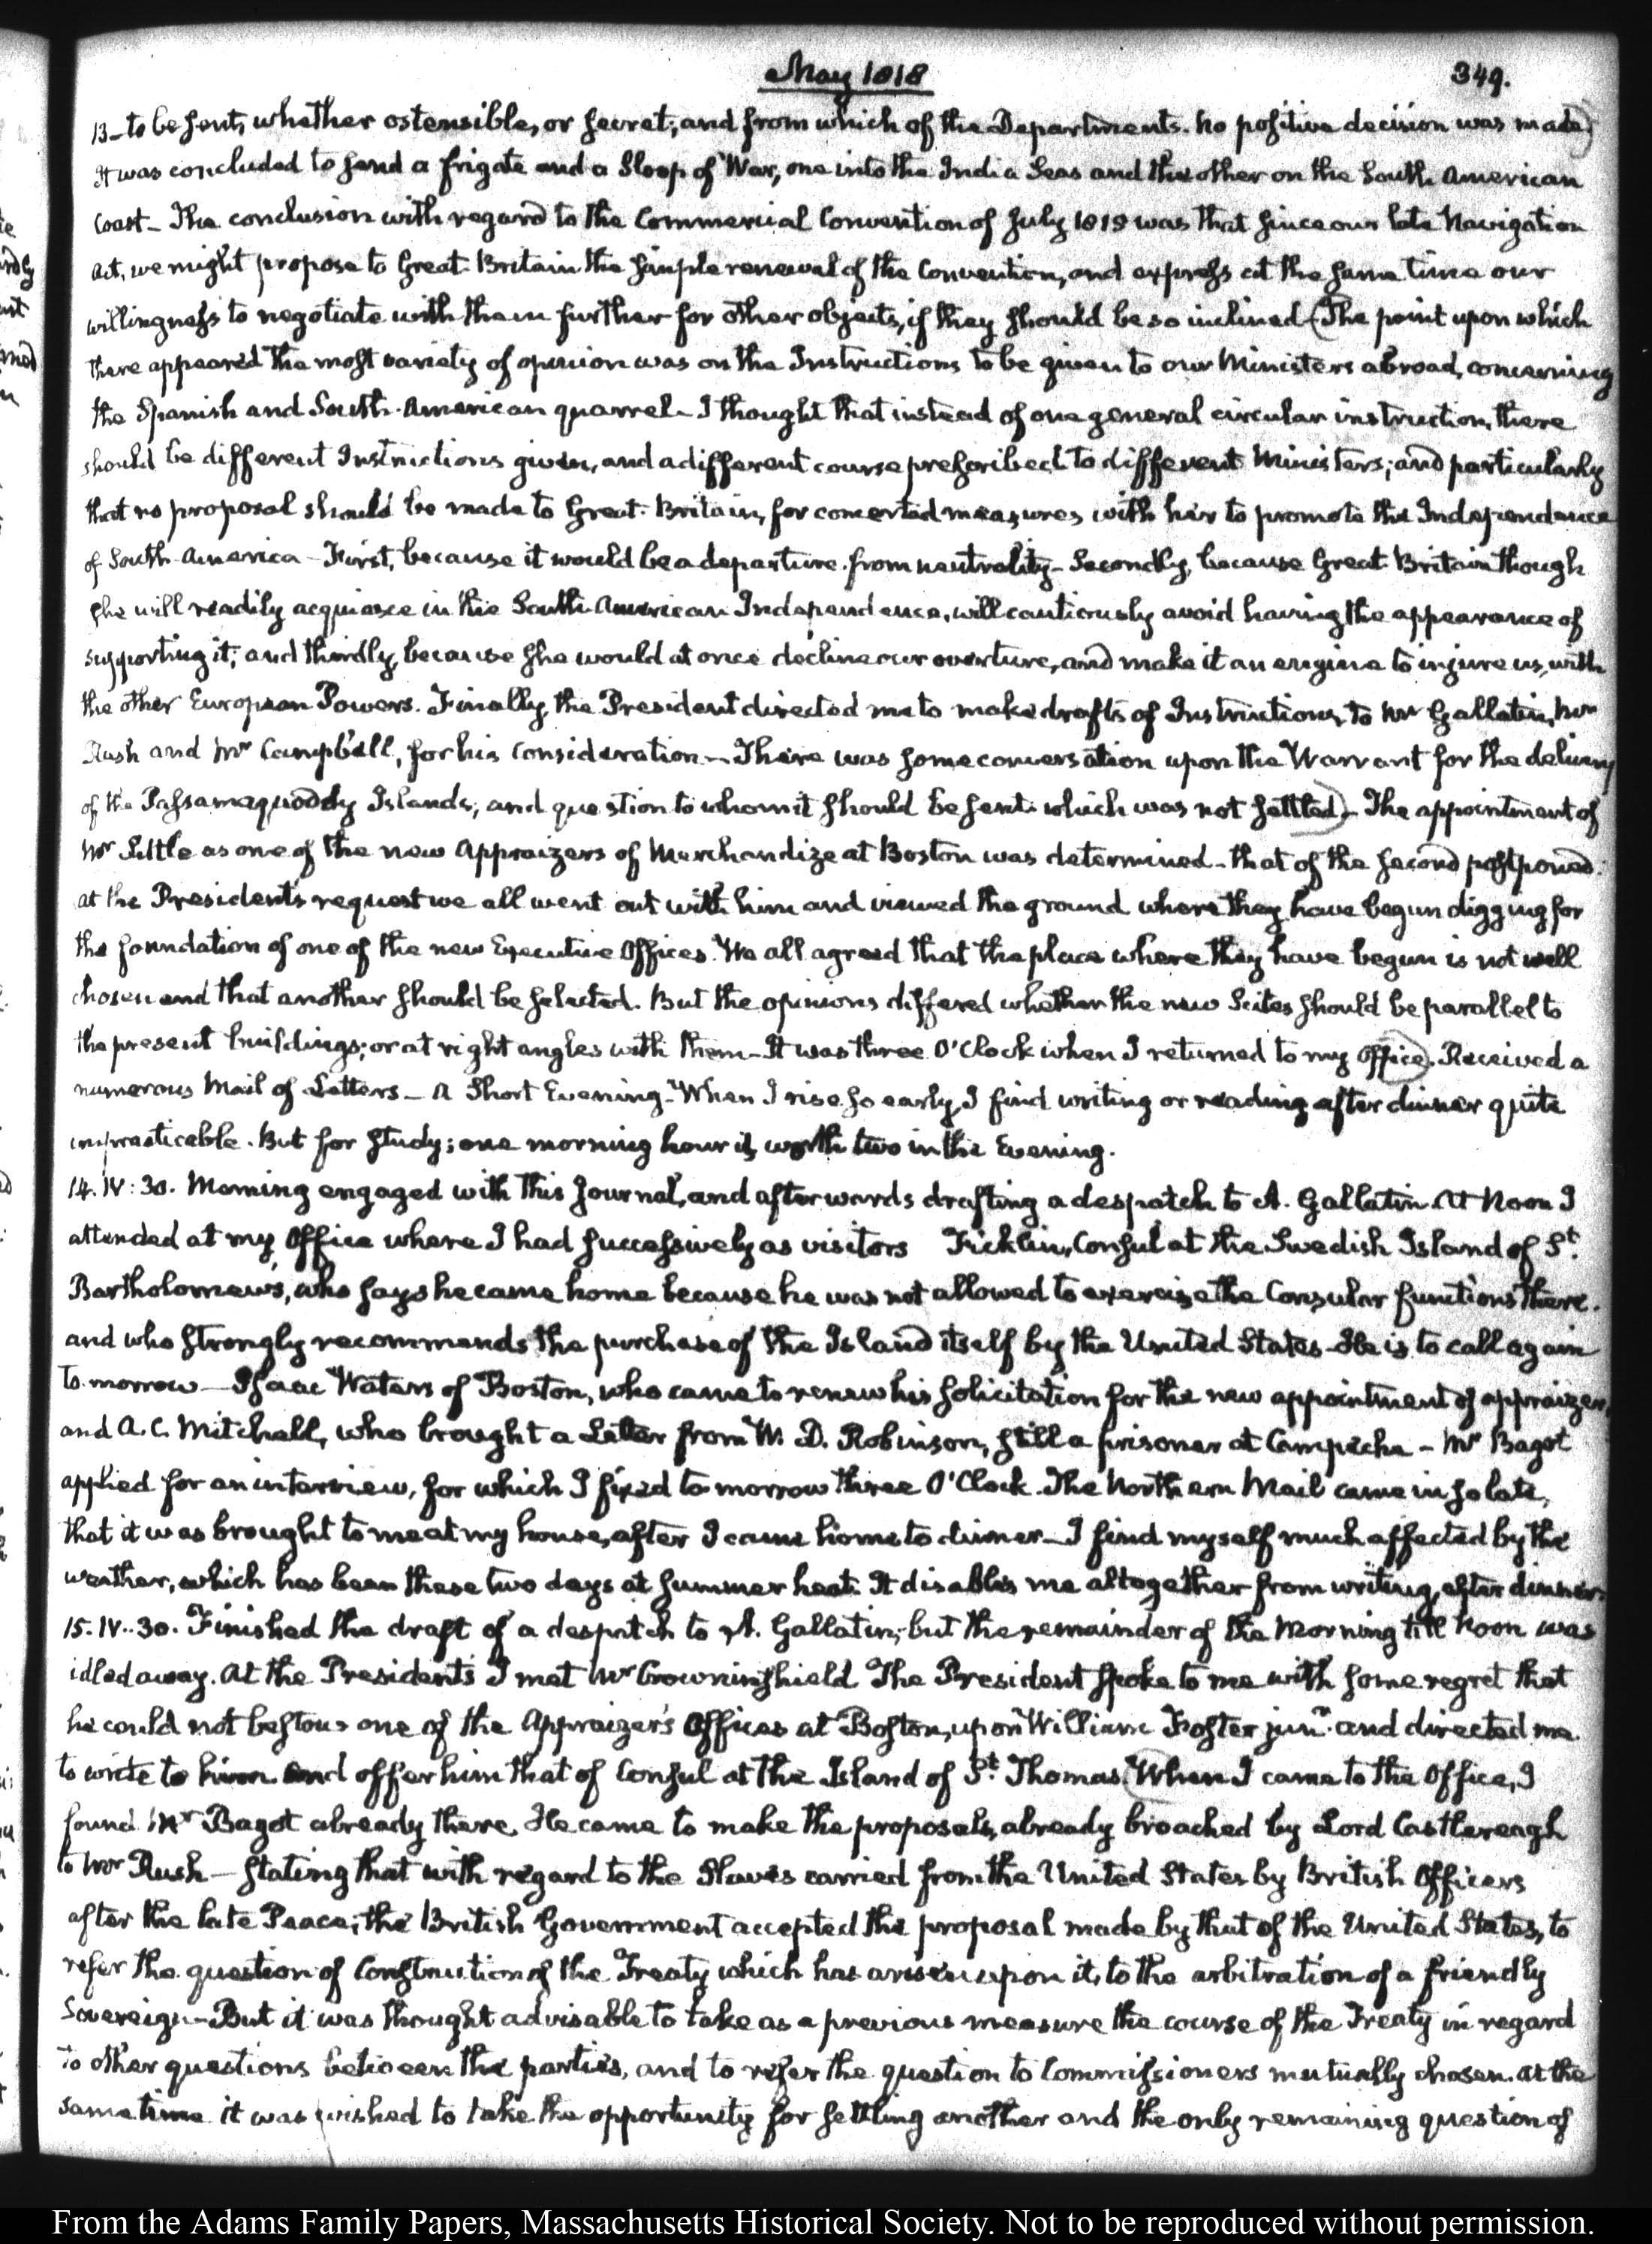 May 1818
349.
13_ to be sent, whether ostensible, or secret; and from which of the Departments. no positive decision was made)
It was concluded to send a frigate and a Sloop of War, one into the India Seas and the other on the South American
Coast_ The conclusion with regard to the Commercial Convention of July 1815 was that since our late Navigation
Act, we might propose to Great-Britain the simple renewal of the Convention, and express at the same time our
willingness to negotiate with them further for other objects, if they should be so inclined_(The point upon which
there appeared the most variety of opinion was on the Instructions to be given to our Ministers abroad, concerning
the Spanish and South-American quarrel_ I thought that instead of one general circular instruction, there
should be different Instructions given, and a different course prescribed to different Ministers; and particularly
that no proposal should be made to Great-Britain, for concerted measures with her to promote the Independence
of South-America_ First, because it would be a departure from neutrality_ Secondly, because Great-Britain though
she will readily acquiesce in the South-American Independence, will cautiously avoid having the appearance of
supporting it; and thirdly, because she would at once decline our overture, and make it an engine to injure us, with
the other European Powers. Finally, the President directed me to make drafts of Instructions, to Mr Gallatin, Mr
Rush and Mr Campbell, for his consideration._ There was some conversation upon the Warrant for the delivery
of the Passamaquoddy Islands; and question to whom it should be sent, which was not settled)_ The appointment of
Mr Little as one of the new Appraizers of Merchandize at Boston was determined_ that of the second postponed.
At the President's request we all went out with him and viewed the ground where they have begun digging for
the foundation of one of the new Executive Offices. We all agreed that the place where they have begun is not well
chosen and that another should be selected. But the opinions differed whether the new Scites should be parallel to
the present buildings; or at right angles with them_ It was three O'Clock when I returned to my Office). Received a
numerous Mail of Letters_ A Short Evening_ When I rise so early, I find writing or reading after dinner quite
impracticable. But for study; one morning hour is worth two in the Evening.
14. IV:30. Morning engaged with this Journal, and afterwards drafting a despatch to A. Gallatin. At Noon I
attended at my Office where I had successively as visitors Ficklin, Consul at the Swedish Island of St.
Bartholomews, who says he came home because he was not allowed to exercise the Consular functions there.
and who strongly recommends the purchase of the Island itself by the United States_ He is to call again
to-morrow_ Isaac Waters of Boston, who came to renew his solicitation for the new appointment of appraizer,
and A. C. Mitchell, who brought a Letter from W. D. Robinson, still a prisoner at Campeche_ Mr Bagot
applied for an interview, for which I fixed to-morrow three O'Clock. The Northern Mail came in so late,
that it was brought to me at my house, after I came home to dinner_ I find myself much affected by the
weather, which has been these two days at summer heat. It disables me altogether from writing, after dinner.
15. IV:30. Finished the draft of a despatch to A. Gallatin; but the remainder of the Morning till Noon was
idled away. At the President's I met Mr Crowninshield. The President spoke to me with some regret that
he could not bestow one of the Appraizer's Offices at Boston, upon William Foster junr. and directed me
to write to him and offer him that of Consul at the Island of St. Thomas. (When I came to the Office, I
found Mr Bagot already there. He came to make the proposals, already broached by Lord Castlereagh
to Mr Rush_ stating that with regard to the Slaves carried from the United States by British Officers
after the late Peace, the British Government accepted the proposal made by that of the United States, to
refer the question of Construction of the Treaty which has arisen upon it, to the arbitration of a friendly
Sovereign_ But it was thought advisable to take as a previous measure the course of the Treaty in regard
to other questions between the parties, and to refer the question to Commissioners mutually chosen. At the
same time it was wished to take the opportunity for settling another and the only remaining question of
From the Adams Family Papers, Massachusetts Historical Society. Not to be reproduced without permission.